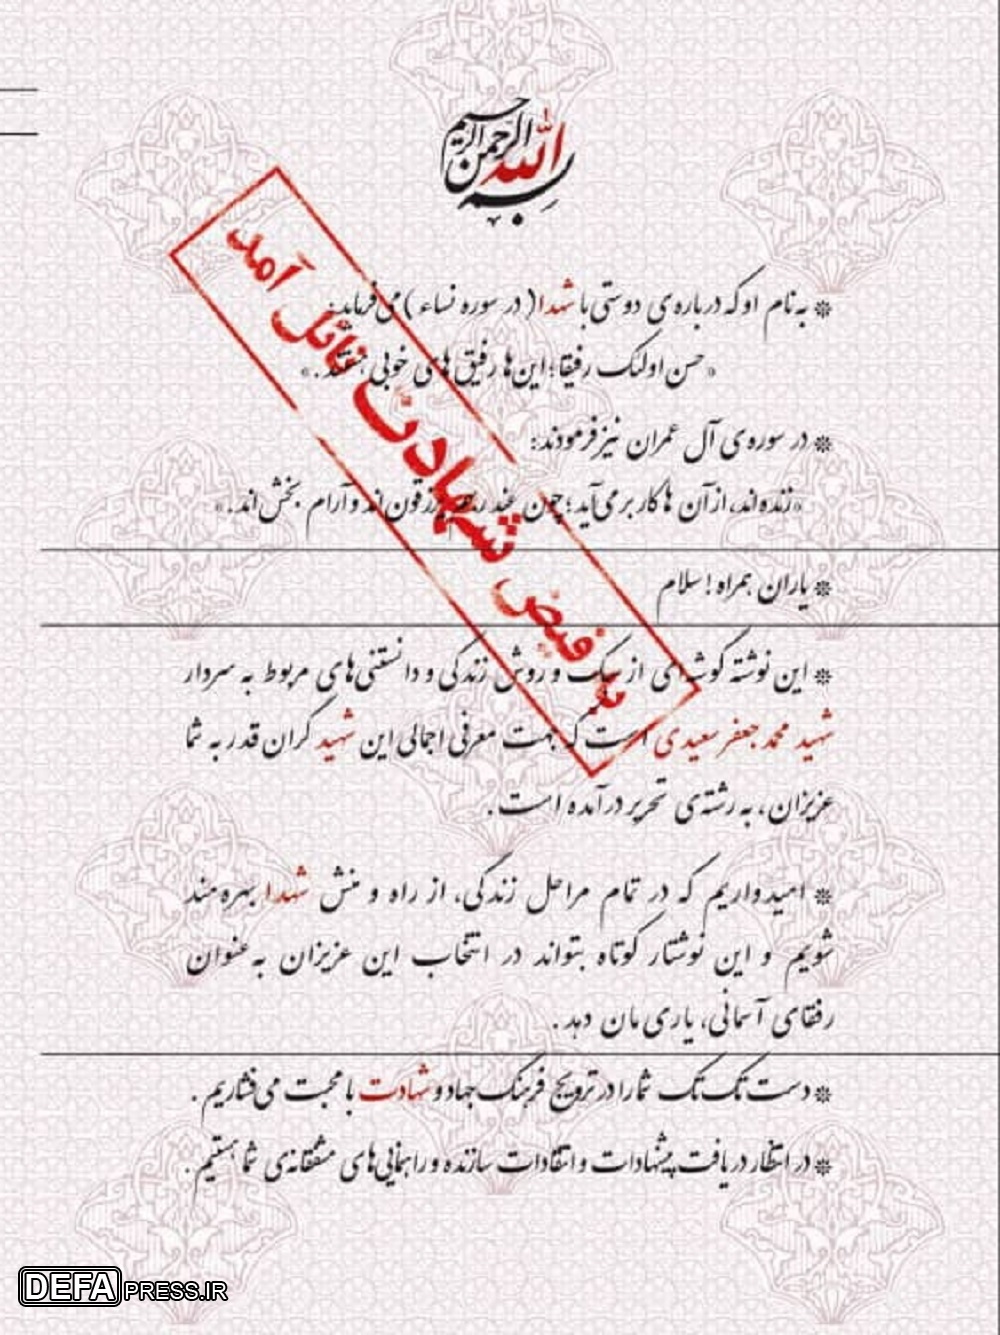 بسم الله الرحمن الرحیم
به فیض شهادت نائل آمد
* به نام او که درباره‌ی دوستی با شهدا ( در سوره نساء ) می‌فرماید:
« حسن اولئک رفیقا؛ این‌ها رفیق‌های خوبی هستند. »
* در سوره‌ی آل عمران نیز فرمودند:
« زنده‌اند، از آن ها کار بر می‌آید ؛ چون عند ربهم یرزقون‌اند و آرام بخش‌اند. »
* یاران همراه ! سلام
* این نوشته گوشه‌ای از سبک و روش زندگی و دانستنی‌های مربوط به سردار
شهید محمدجعفر سعیدی است که جهت معرفی اجمالی این شهید گران قدر به شما
عزیزان، به رشته‌ی تحریر در آمده است.
* امیدواریم که در تمام مراحل زندگی، از راه و منش شهدا بهره مند
شویم و این نوشتار کوتاه بتواند در انتخاب این عزیزان به عنوان
رفقای آسمانی، یاری مان دهد.
* دست تک تک شما را در ترویج فرهنگ جهاد و شهادت با محبت می‌فشاریم.
* در انتظار دریافت پیشهادات و انتقادات سازنده و راهنمایی‌های مشفقانه‌ی شما هستیم.
DEFAPRESS.IR